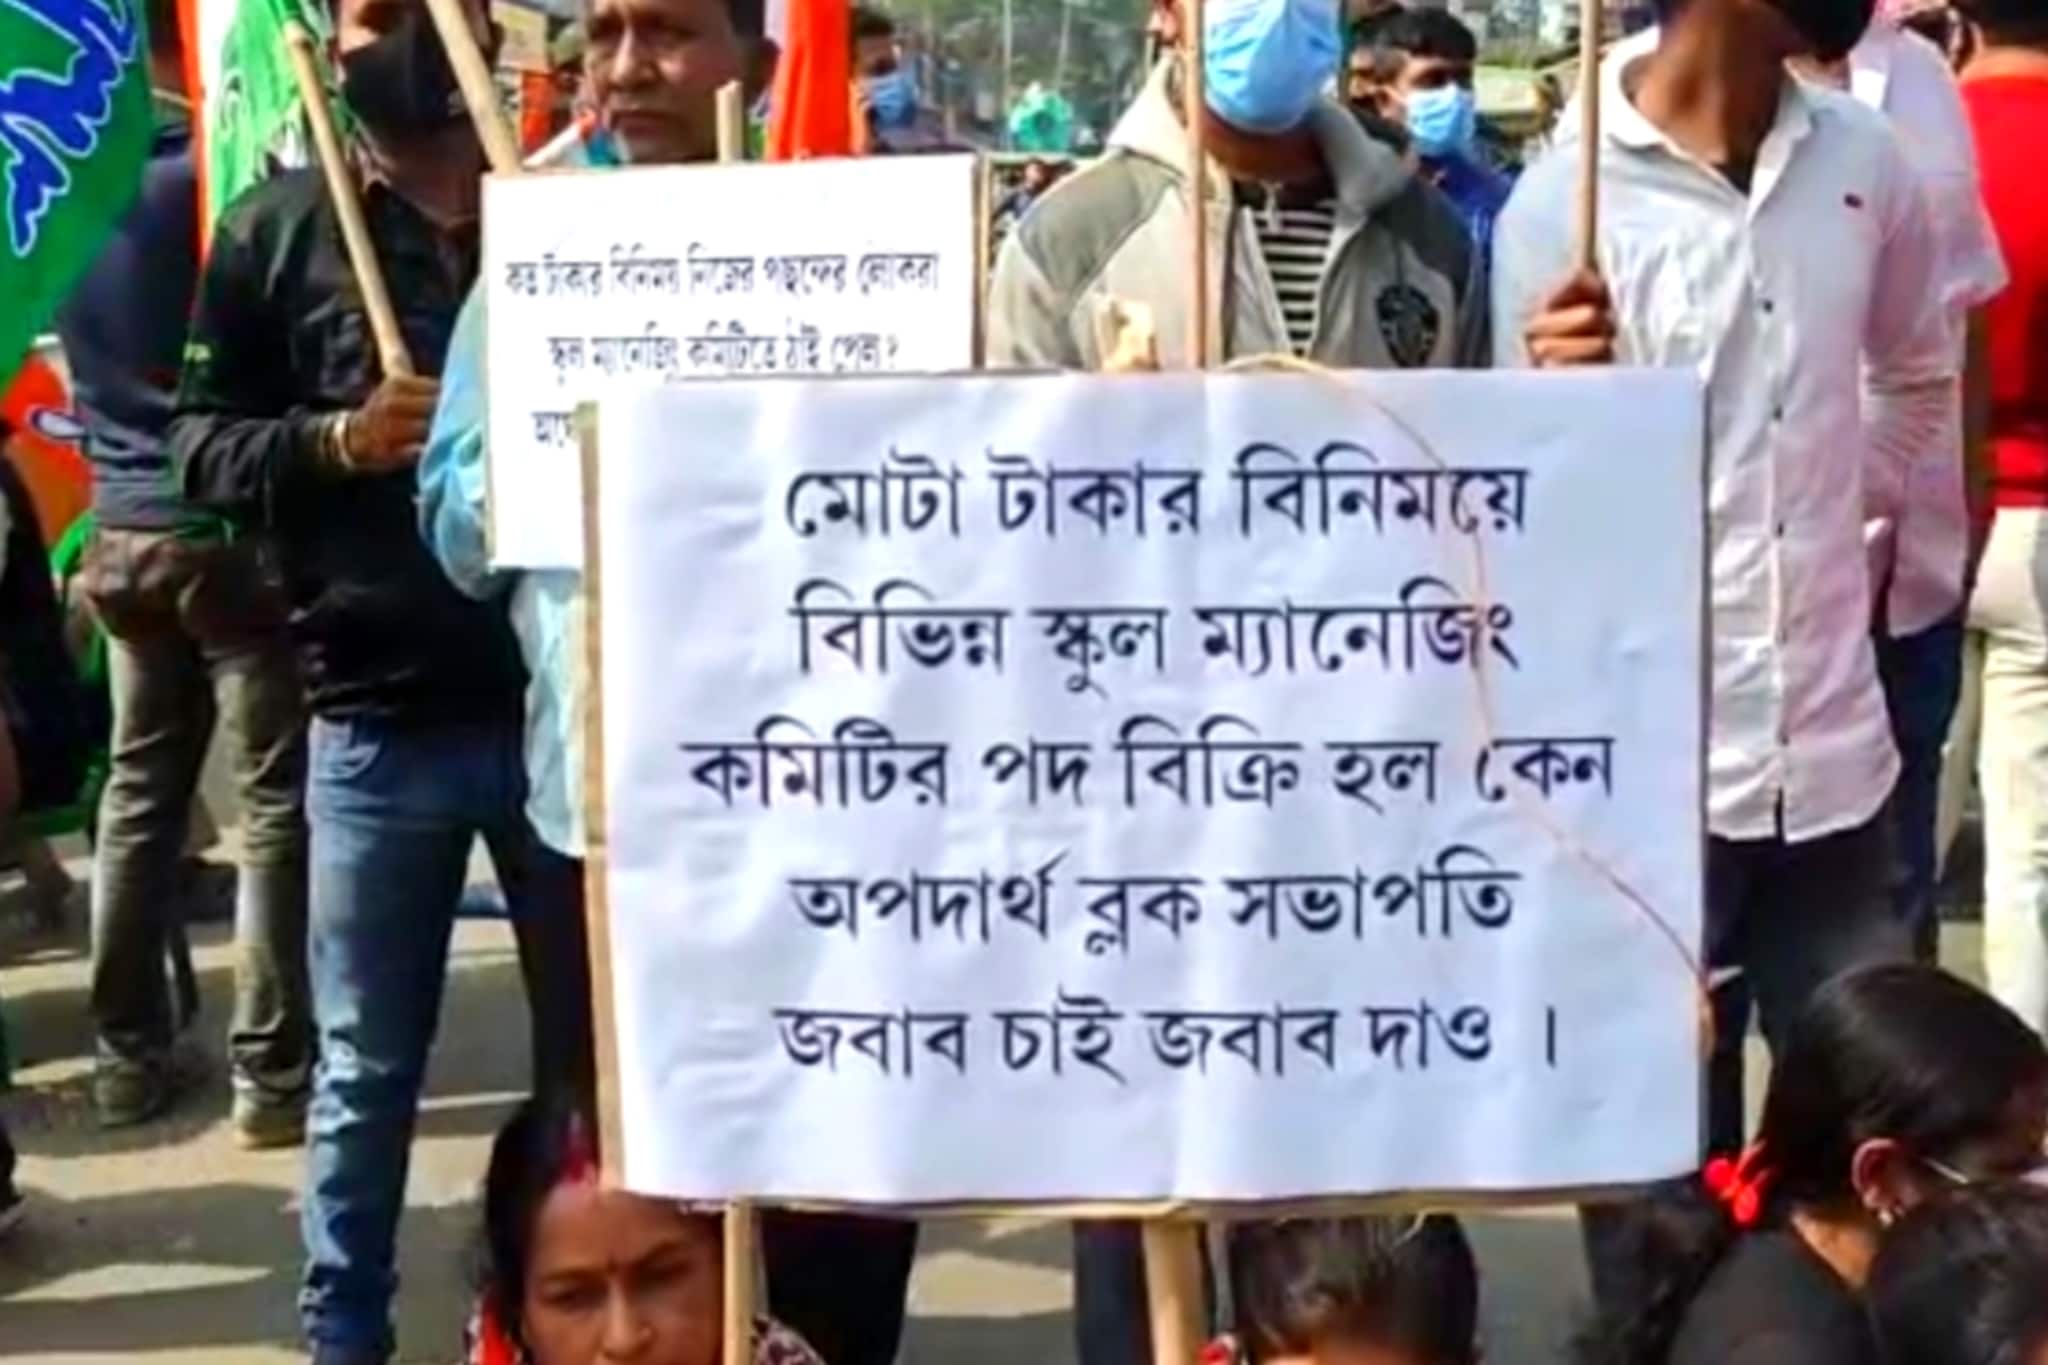 কত টাকার বিনিময় নিজের পছন্দের লোকরা
স্কুল ম্যানেজিং কমিটিতে ঠাঁই পেল?
মোটা টাকার বিনিময়ে
বিভিন্ন স্কুল ম্যানেজিং
কমিটির পদ বিক্রি হল কেন
অপদার্থ ব্লক সভাপতি
জবাব চাই জবাব দাও ।